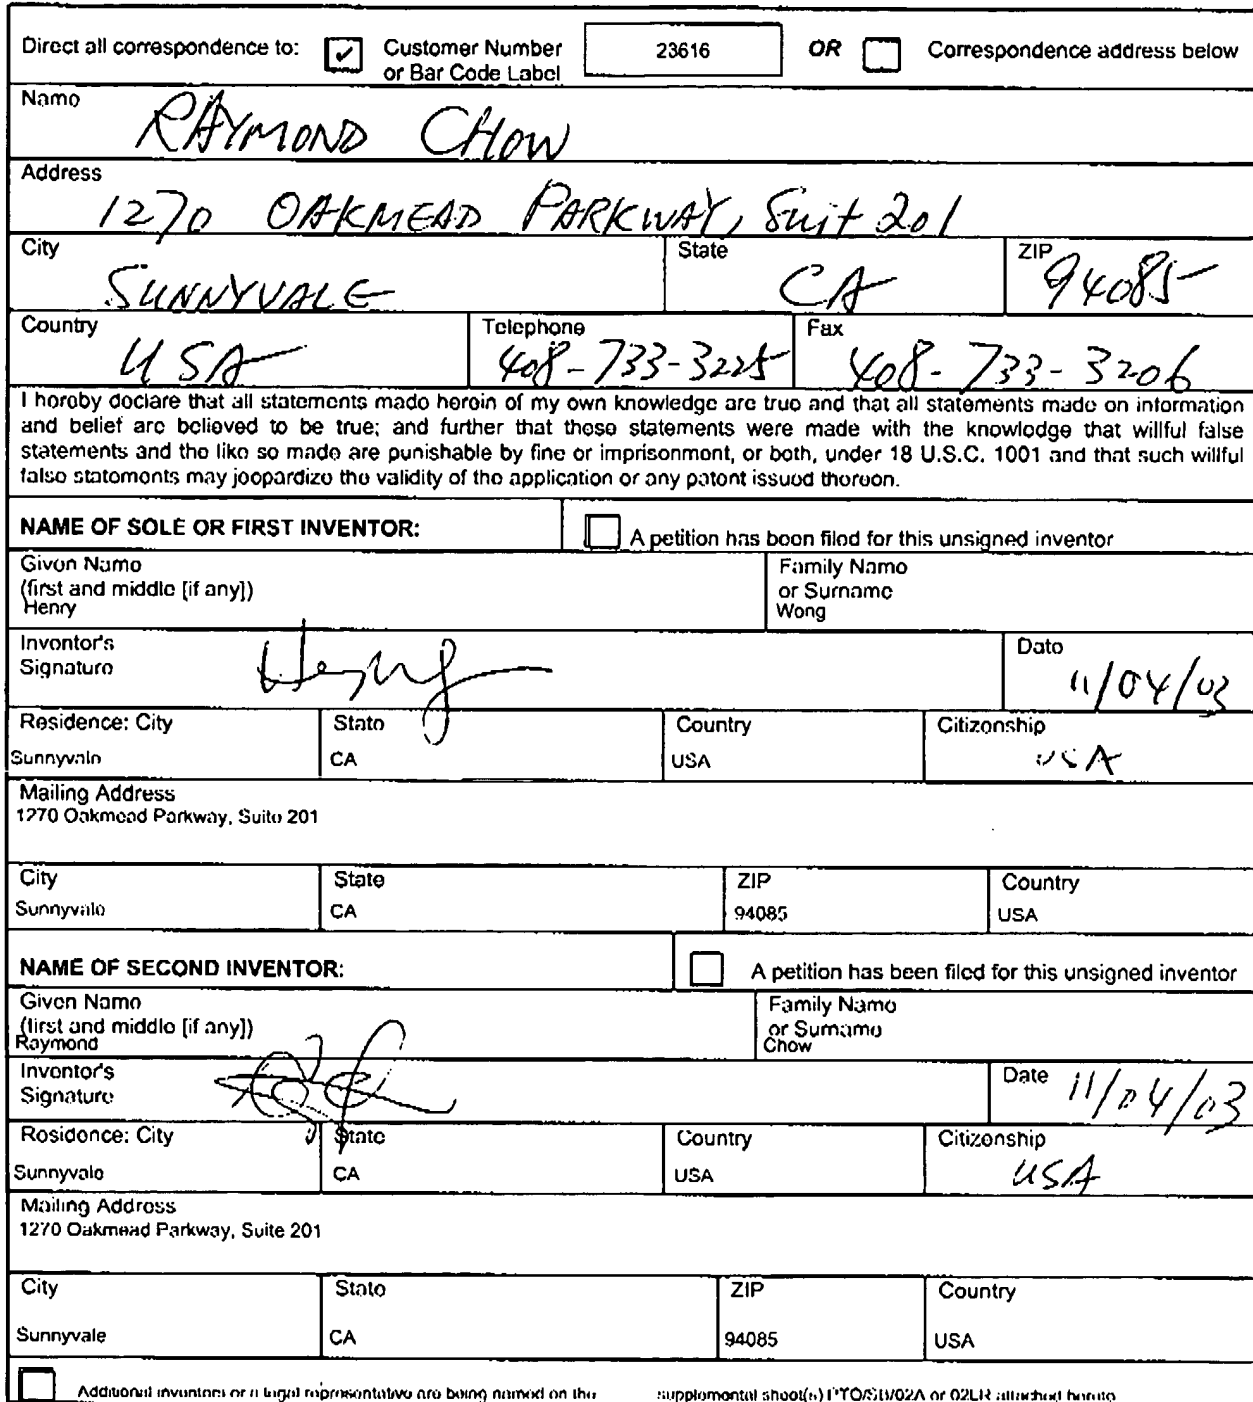 Direct all correspondence to: ✓ Customer Number or Bar Code Label 23616 OR Correspondence address below
Name
RAYMOND CHOW
Address
1270 OAKMEAD PARKWAY, Suit 201
City State ZIP
SUNNYVALE CA 94085
Country Telephone Fax
USA 408-733-3225 408-733-3206
I hereby declare that all statements made herein of my own knowledge are true and that all statements made on information
and belief are believed to be true; and further that these statements were made with the knowledge that willful false
statements and the like so made are punishable by fine or imprisonment, or both, under 18 U.S.C. 1001 and that such willful
false statements may jeopardize the validity of the application or any patent issued thereon.
NAME OF SOLE OR FIRST INVENTOR: A petition has been filed for this unsigned inventor
Given Name Family Name
(first and middle [if any]) or Surname
Henry Wong
Inventor's Date
Signature 11/04/03
Residence: City State Country Citizenship
Sunnyvale CA USA USA
Mailing Address
1270 Oakmead Parkway, Suite 201
City State ZIP Country
Sunnyvale CA 94085 USA
NAME OF SECOND INVENTOR: A petition has been filed for this unsigned inventor
Given Name Family Name
(first and middle [if any]) or Surname
Raymond Chow
Inventor's Date
Signature 11/04/03
Residence: City State Country Citizenship
Sunnyvale CA USA USA
Mailing Address
1270 Oakmead Parkway, Suite 201
City State ZIP Country
Sunnyvale CA 94085 USA
Additional inventors or a legal representative are being named on the supplemental sheet(s) PTO/SB/02A or 02LR attached hereto